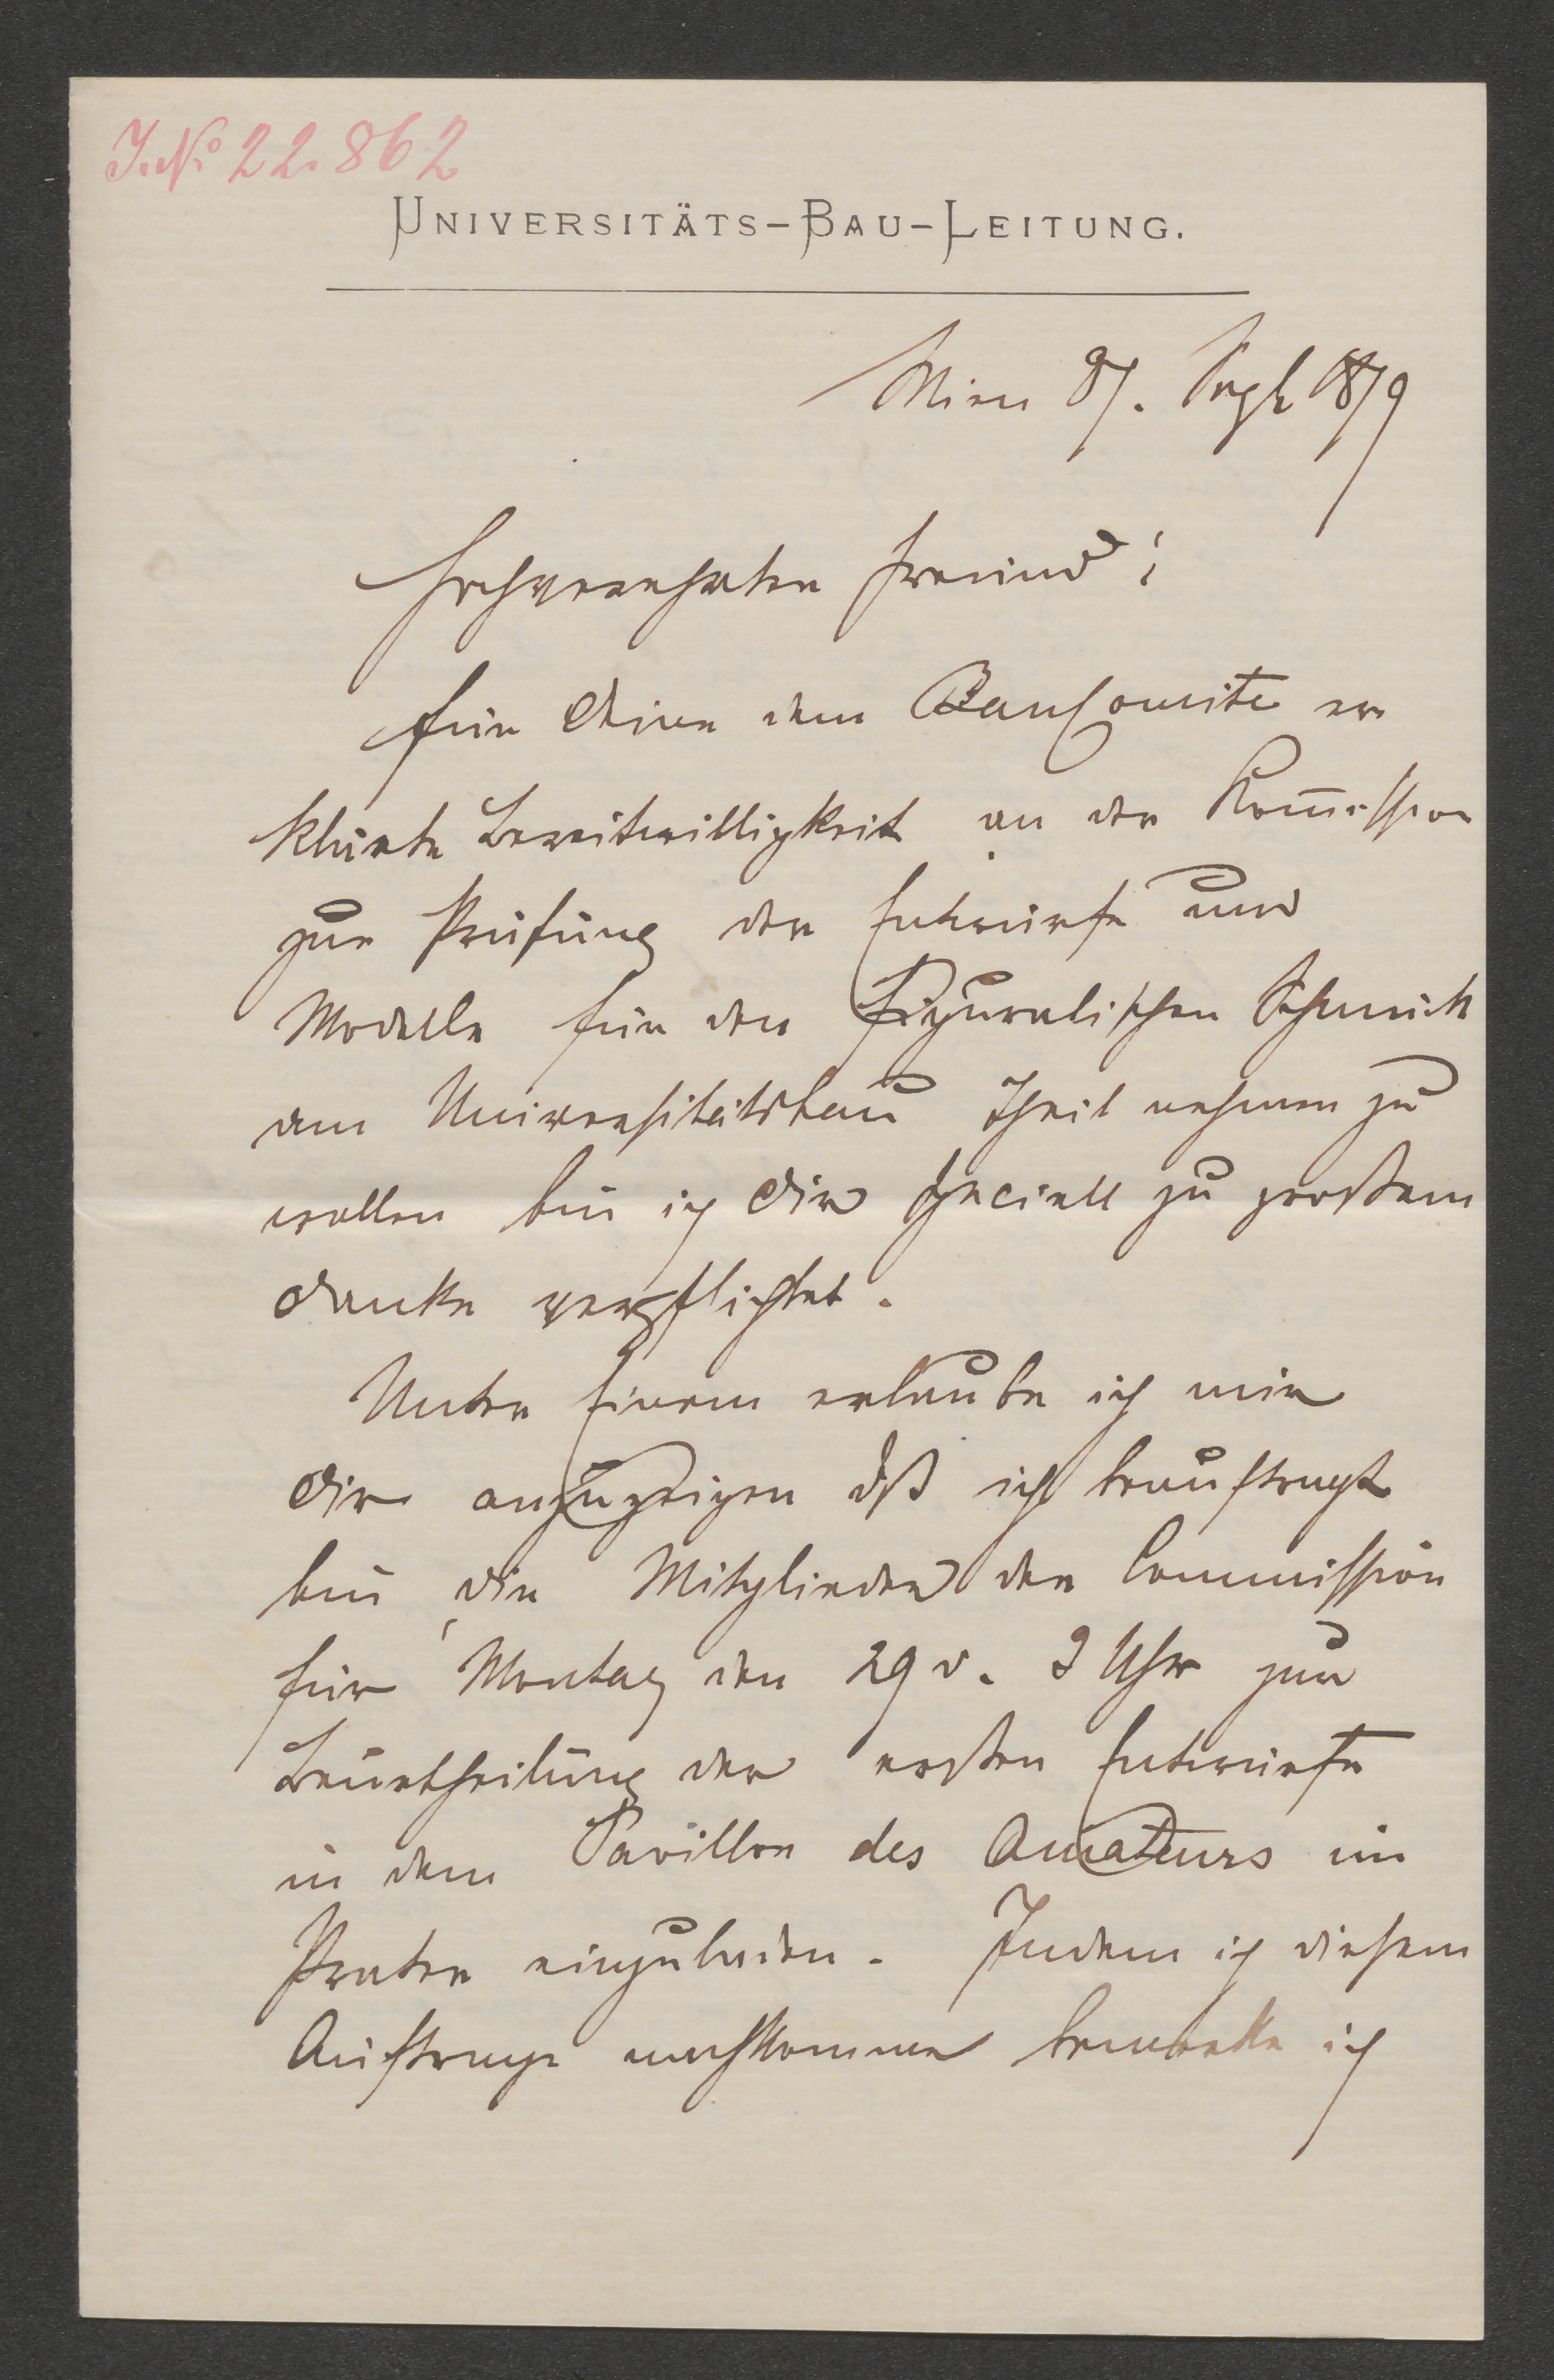 J. No 22.862
UNIVERSITÄTS-BAU-LEITUNG.
Wien 27. Sept 1879
Hochverehrter Freund!
Für Deine dem Baucomite er
klärte Bereitwilligkeit an der Kom̅ission
zur Prüfung der Entwürfe und
Modelle für den figuralischen Schmuck
am Universitätsbau Theil nehmen zu
wollen bin ich Dir speciell zu großem
Danke verpflichtet.
Unter Einem erlaube ich mir
Dir anzuzeigen dß ich beauftragt
bin die Mitglieder der Commission
für Montag den 29 d. 3 Uhr zur
Beurtheilung der ersten Entwürfe
in dem Pavillon des Amateurs im
Prater einzuladen. Indem ich diesem
Auftrage nachkomme bemerke ich